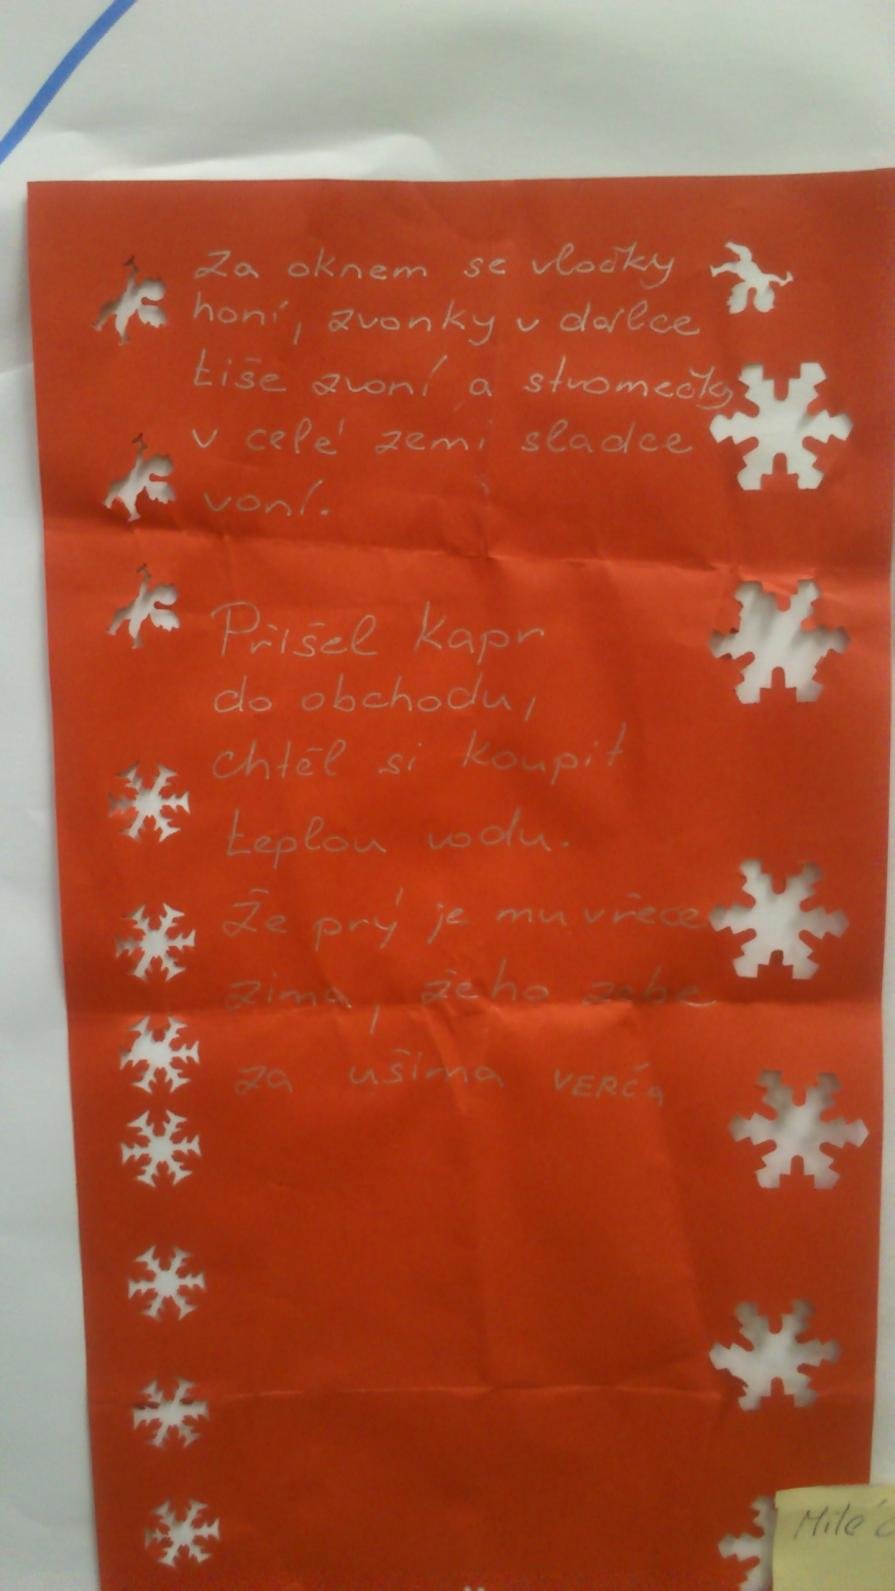 Za oknem se vločky
honí, zvonky v dálce
tiše zvoní a stromečky
v celé zemi sladce
voní.
Přišel Kapr
do obchodu,
chtěl si koupit
teplou vodu.
Že prý je mu vřece
zima, žeho zebe
za ušima VERČA
Milé